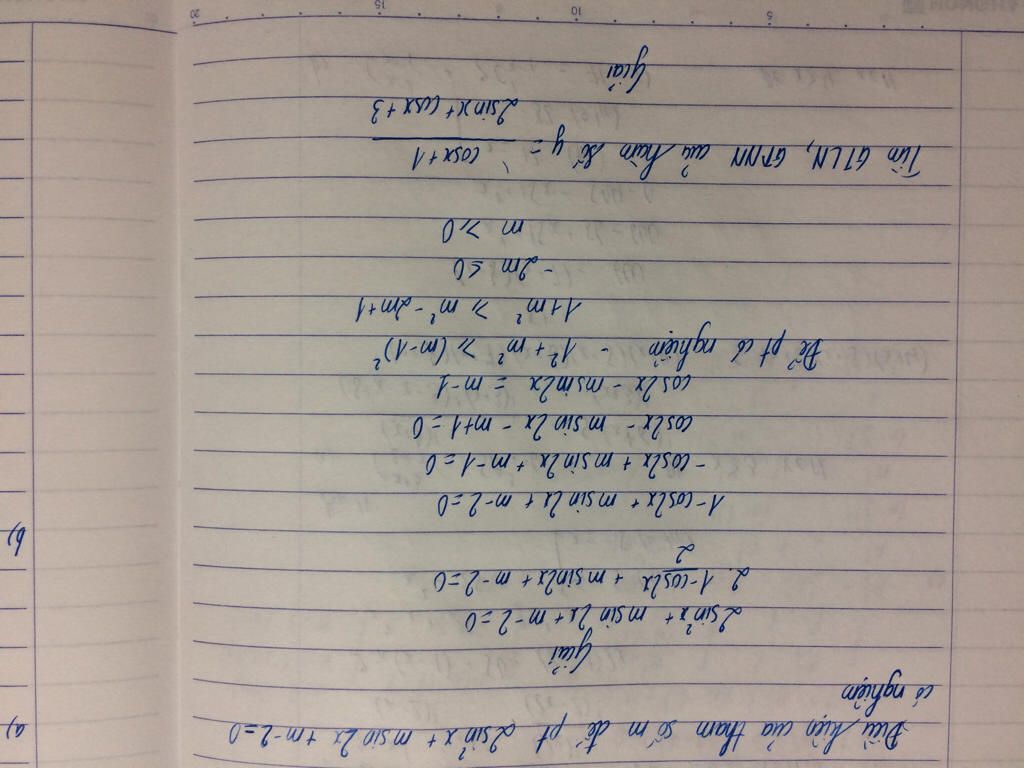 a) Điều kiện của tham số m để pt 2sin²x + m sin 2x + m - 2 = 0
có nghiệm
Giải
2sin²x + m sin 2x + m - 2 = 0
2. (1 - cos2x)/2 + m sin2x + m - 2 = 0
1 - cos2x + m sin 2x + m - 2 = 0
- cos2x + m sin 2x + m - 1 = 0
cos2x - m sin 2x - m + 1 = 0
cos2x - m sin2x = m - 1
Để pt có nghiệm - 1² + m² ≥ (m - 1)²
1 + m² ≥ m² - 2m + 1
- 2m ≤ 0
m ≥ 0
b) Tìm GTLN, GTNN của hàm số y = (cosx + 1)/(2sinx + cosx + 3)
Giải
5 10 15 20